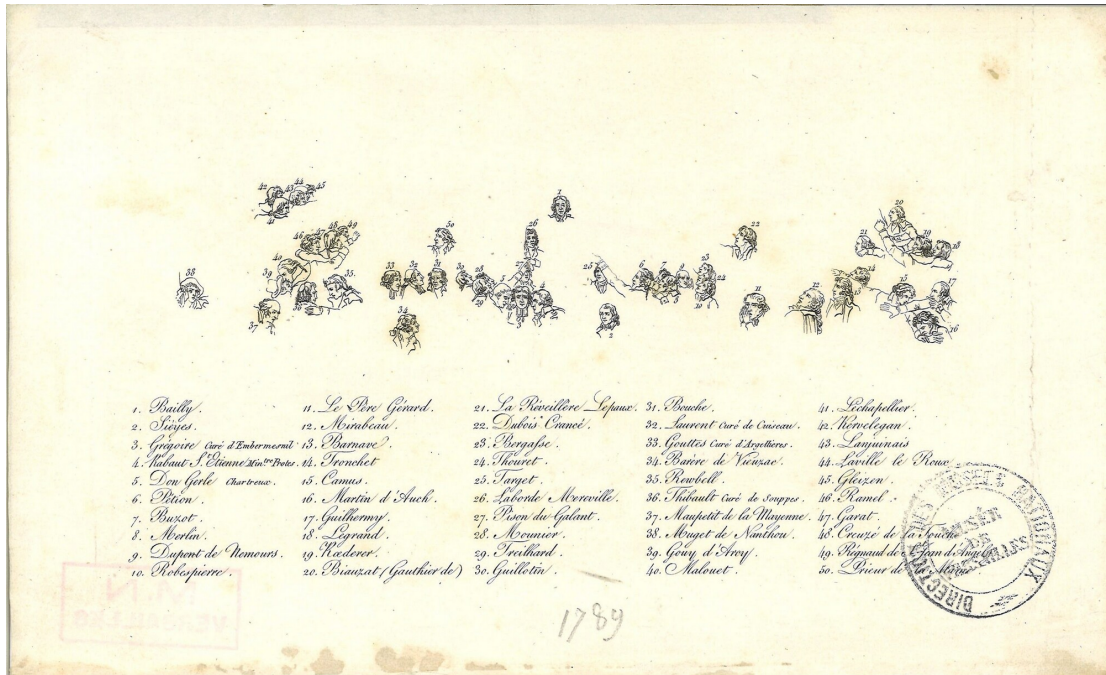 1. Bailly.
2. Siéyes.
3. Grégoire Curé d'Embermenil
4. Rabaut St. Etienne Mintre Protes.
5. Don Gerle Chartreux.
6. Pétion.
7. Buzot.
8. Merlin.
9. Dupont de Nemours.
10. Robespierre.
11. Le Père Gérard.
12. Mirabeau.
13. Barnave.
14. Tronchet
15. Camus.
16. Martin d'Auch.
17. Guilhermy.
18. Légrand.
19. Rœderer.
20. Biauzat (Gauthier de)
21. La Réveillère Lepaux.
22. Dubois Crancé.
23. Bergasse.
24. Thouret.
25. Target.
26. Laborde Mereville.
27. Pison du Galant.
28. Mounier.
29. Treilhard.
30. Guillotin.
31. Bouche.
32. Laurent Curé de Cuiseau.
33. Gouttes Curé d'Argellieres.
34. Barère de Vieuzac.
35. Rewbell.
36. Thibault Curé de Souppes.
37. Maupetit de la Mayenne.
38. Muget de Nanthou.
39. Gouy d'Arcy.
40. Malouet.
41. Léchapellier.
42. Kervelegan.
43. Lanjuinais
44. Laville le Roux
45. Gleizen.
46. Ramel.
47. Garat.
48. Creuzé de la Touche
49. Régnaud de St. Jean d'Angely
50. Prieur de la Marne
1789
M.N
VERSAILLES
DIRECTION DES MUSÉES NATIONAUX
MUSÉE
DE
VERSAILLES